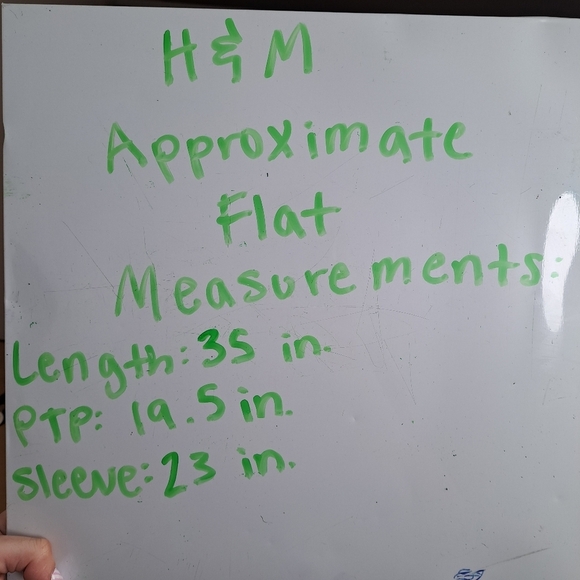 H & M
Approximate
Flat
Measurements:
Length: 35 in.
PTP: 19.5 in.
Sleeve: 23 in.